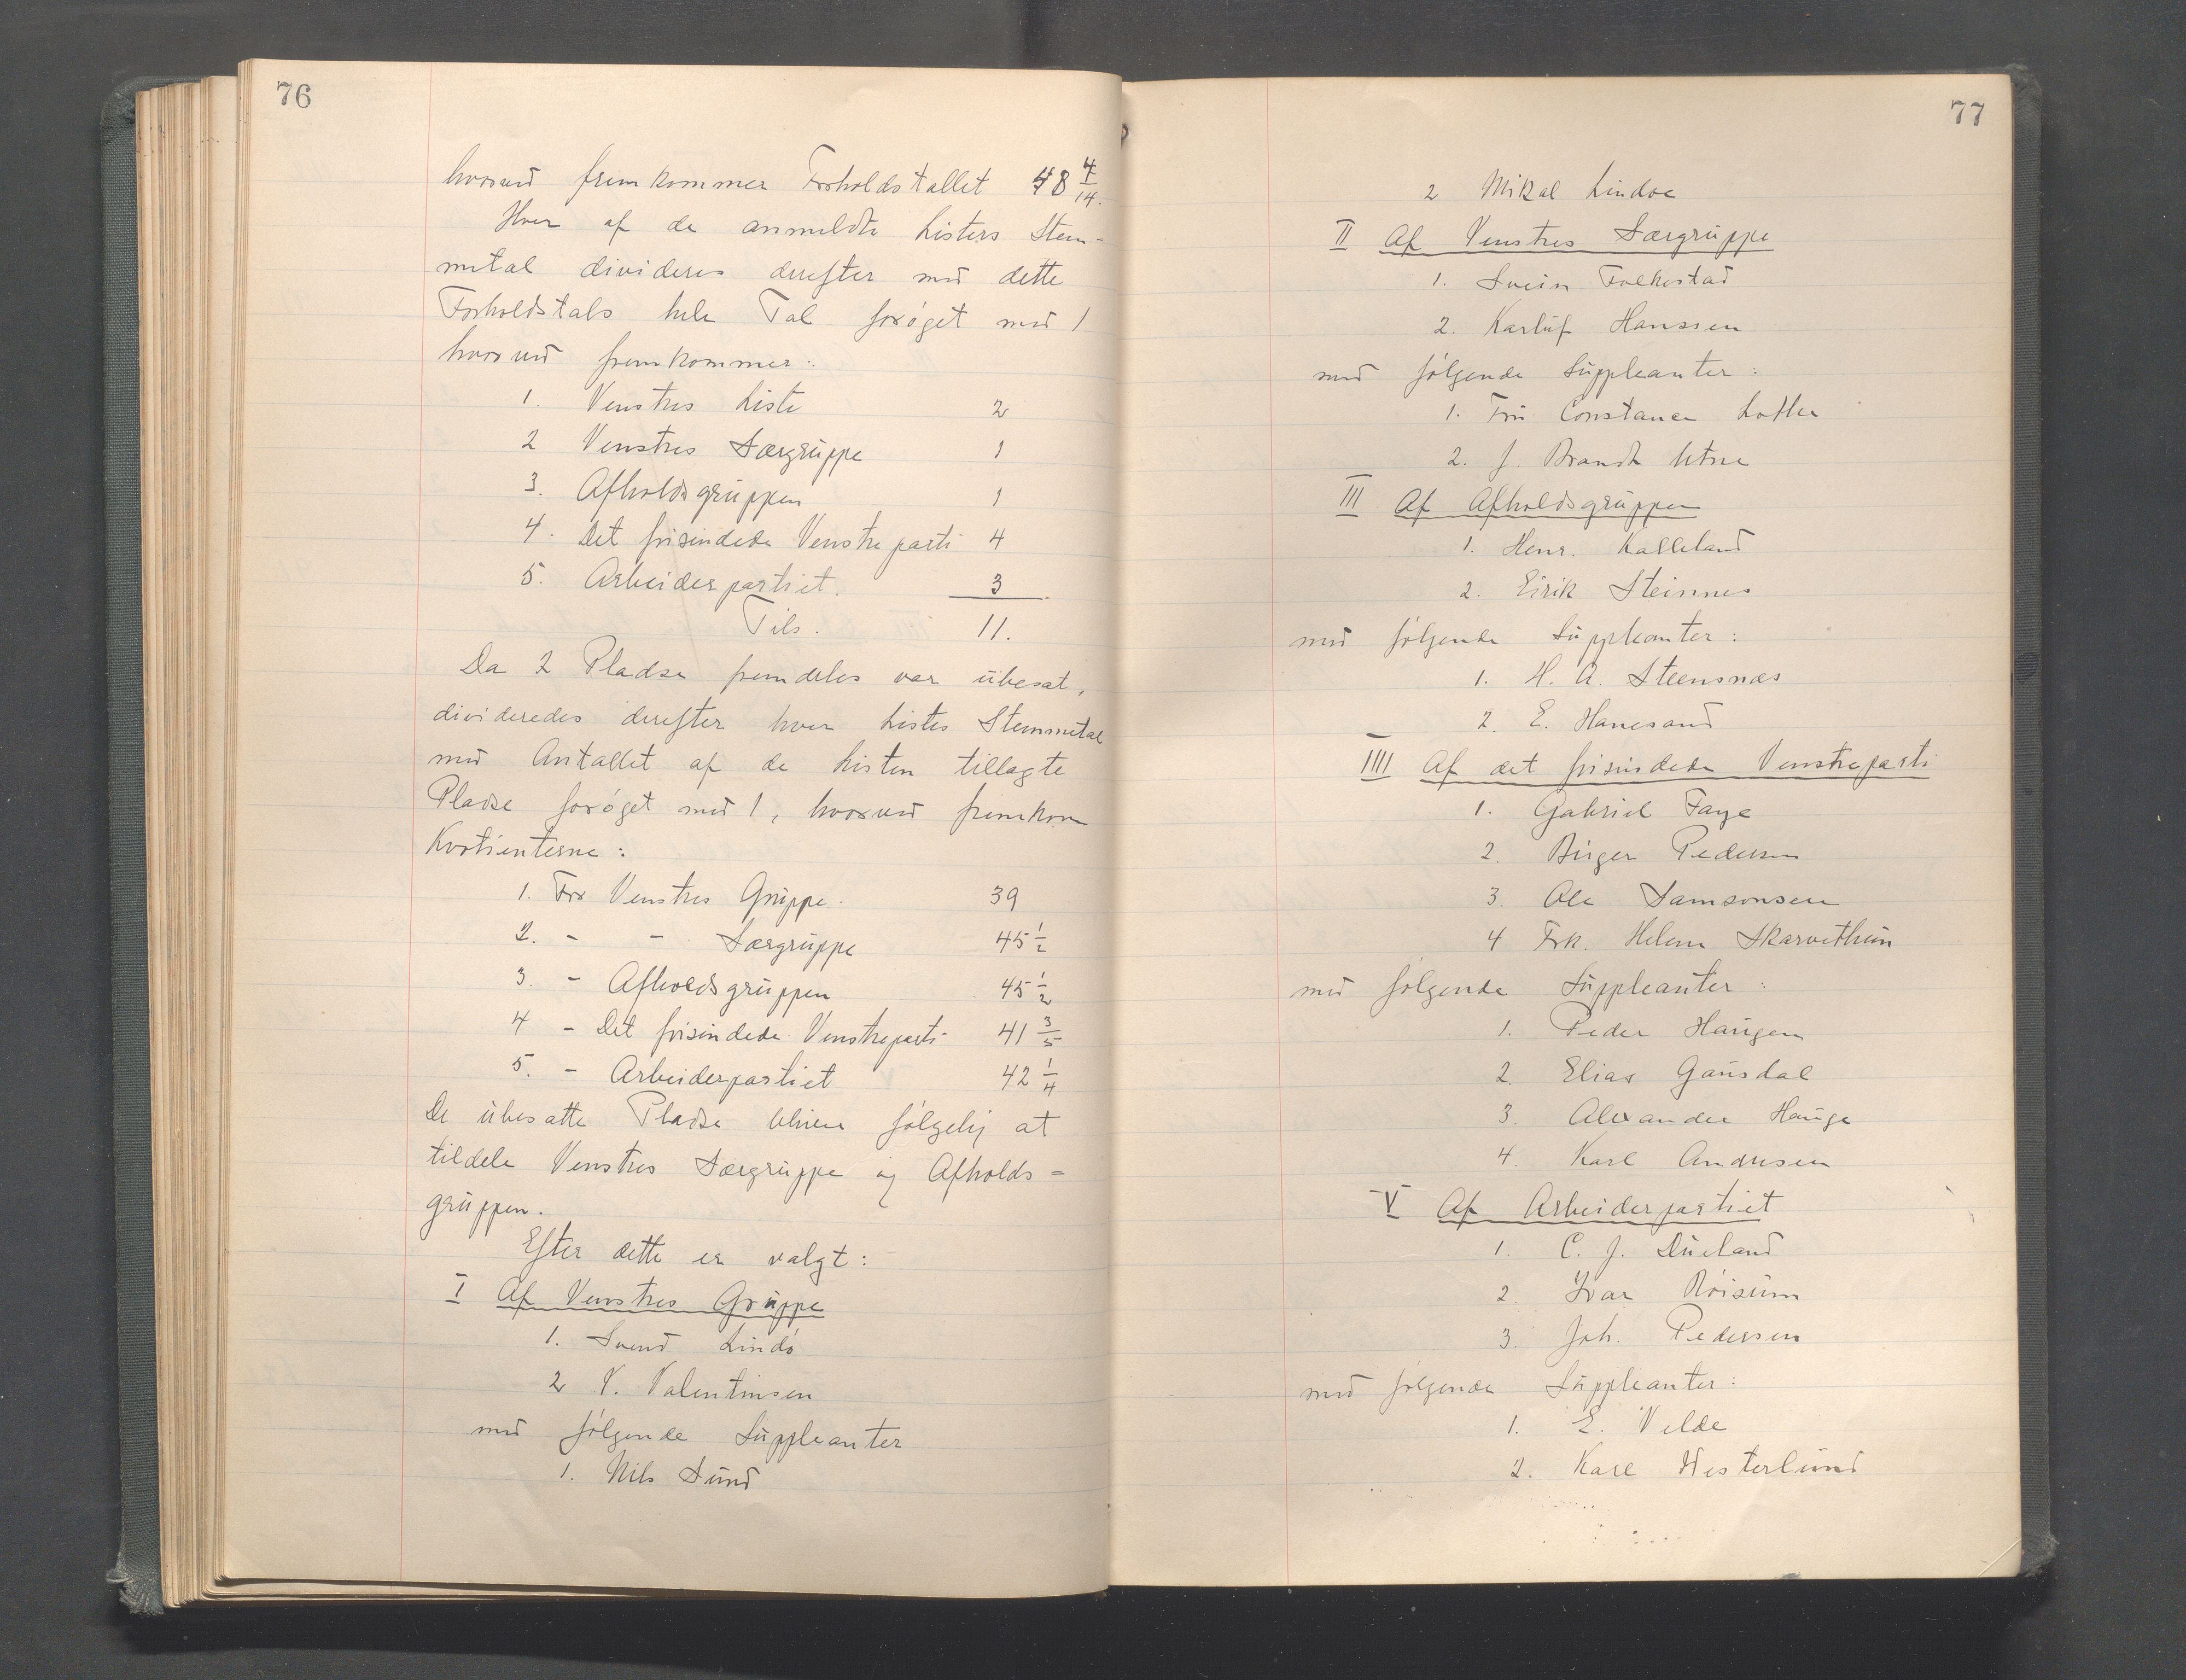 76
hvorved fremkommer Forholdstallet 48 4/14.
Hver af de anmeldte Listers Stem-
metal divideres derefter med dette
Forholdstals hele Tal forøget med 1
hvorved fremkommer:
1. Venstres Liste 2
2 Venstres Særgruppe 1
3. Afholdsgruppen 1
4. Det frisindede Venstreparti 4
5. Arbeiderpartiet. 3
Tils. 11.
Da 2 Pladse fremdeles var ubesat,
divideredes derefter hver Listes Stemmetal
med Antallet af de Listen tillagte
Pladse forøget med 1, hvorved fremkom
Kvotienterne:
1. For Venstres Gruppe. 39
2. - - Særgruppe 45 1/2
3. - Afholdsgruppen 45 1/2
4 - Det frisindede Venstreparti 41 3/5
5. - Arbeiderpartiet 42 1/4
De ubesatte Pladse bliver følgelig at
tildele Venstres Særgruppe og Afholds=
gruppen.
Efter dette er valgt:
I Af Venstres Gruppe
1. Svend Lindø
2 V. Valentinsen
med følgende Suppleanter
1. Nils Sund
77
2 Mikal Lindoe
II Af Venstres Særgruppe
1. Svein Folkestad
2. Karluf Hanssen
med følgende Suppleanter:
1. Fru Constance Lothe
2. J. Brandt Utne
III Af Afholdsgruppen
1. Henr. Kalleland
2. Eirik Steinnes
med følgende Suppleanter:
1. H. A. Steensnæs
2 E. Hanesand
IIII Af det frisindede Venstreparti
1. Gabriel Faye
2. Birger Pedersen
3. Ole Samsonsen
4 Frk. Helene Skarvethun
med følgende Suppleanter:
1. Peder Haugen
2. Elias Gausdal
3. Alexander Hauge
4 Karl Andresen
V Af Arbeiderpartiet
1. C. J. Dueland
2. Ivar Røisum
3. Joh. Pedersen
med følgende Suppleanter:
1. E. Velde
2. Karl Westerlund